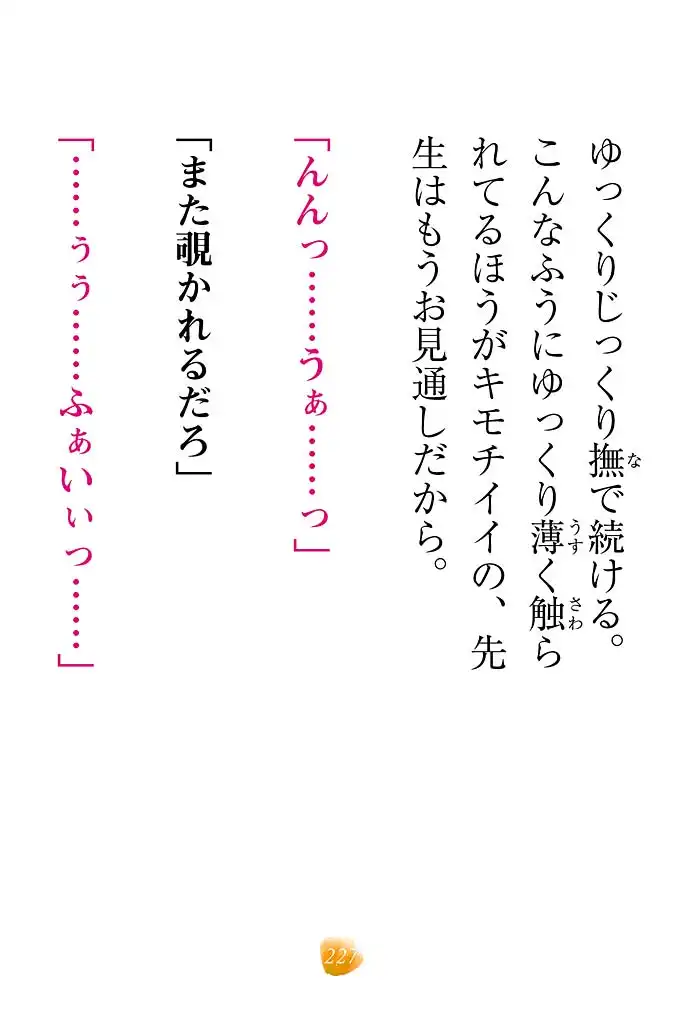 ゆっくりじっくり撫で続ける。
こんなふうにゆっくり薄く触ら
れてるほうがキモチイイの、先
生はもうお見通しだから。
「んんっ……うぁ……っ」
「また覗かれるだろ」
「……ぅぅ……ふぁいぃっ……」
227